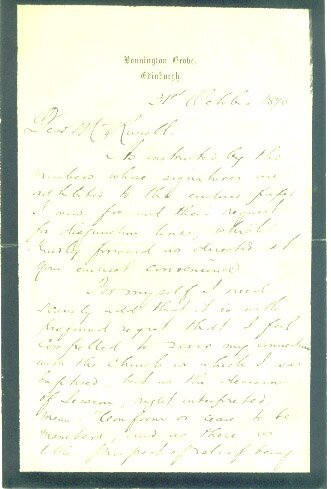 Bonnington Grove,
Edinburgh.
31st October 1890
Dear Mr Russell.
As instructed by the
members whose signatures are
adhibited to the enclosed paper
I now forward their request
for disjunction lines, which
kindly forward as directed at
your earliest convenience
For myself I need
scarcely add that it is with
profound regret that I feel
compelled to sever my connection
with the Church in which I was
baptised but as the decision
of Session, right interpreted
mean conform or cease to be
members, and as there is
little prospect of relief being